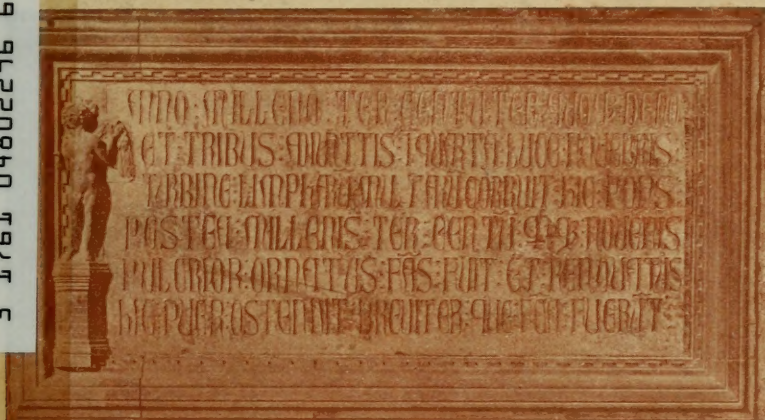 3 1761 04802276 6
ANNO : MILLENO : TER : CENTU : TER : QUOQ : DENO
ET : TRIBUS : ADIUNTTIS : I QUARTA : LUCE : NOUEBRIS :
TURBINE : LIMPHARU : MULTARU : CORRUIT : HIC : PONS
POSTEA : MILLENIS : TER : CENTU : NOUENIS
PULCRIOR : ORNATUS : FĀS : FUIT : ET : RENOUATUS
HIC : PUER : OSTENDIT : BREUITER : QUE : FUERUT